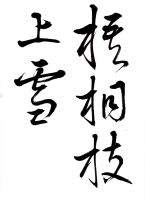 梧桐枝
上雪